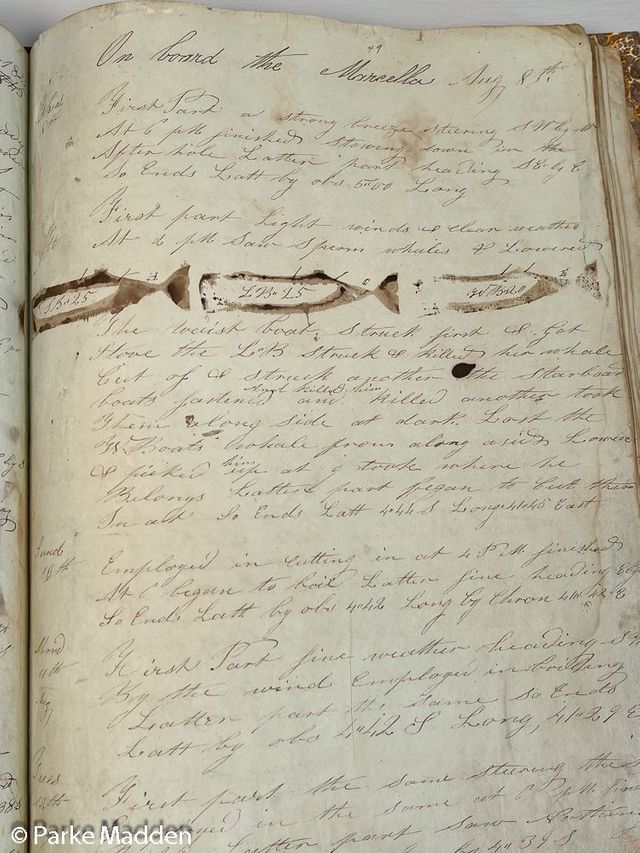 49
On board the Marcella Aug 8th
First Part a strong breeze steering SW by W
At 6 PM finished Stowing down in the
After hole Latter part heading SE by E
So Ends Latt by obs 5"00 Long
First part Light winds & clear weather
At 2 PM Saw Sperm whales & Lowered
SB 25
LB 25
WB 40
The waist boat struck first & got
Stove the L"B Struck & killed her whale
Cut of & struck another the starboard
and killed him
boats fastened and killed another took
Them along side at dark Lost the
W. Boats whale from along aside Lowered
him
& picked up at 9 took where he
Belongs Latter part began to cut them
In all So Ends Latt 4"44 S Long 41"45 East
Sund
10th
Employed in Cutting in at 4 P.M finished
At 6 began to boil Latter fine heading
So Ends Latt by obs 4"42 Long by Chron 41"42 E
Mond
11th
First Part fine weather heading
By the wind Employed in boiling
Latter part the Same So Ends
Latt by obs 4"42 S Long, 41"29 E
Tues
12th
First part the same steering the
Employed in the same at 6 PM
Latter part saw
by 4"39 S
© Parke Madden